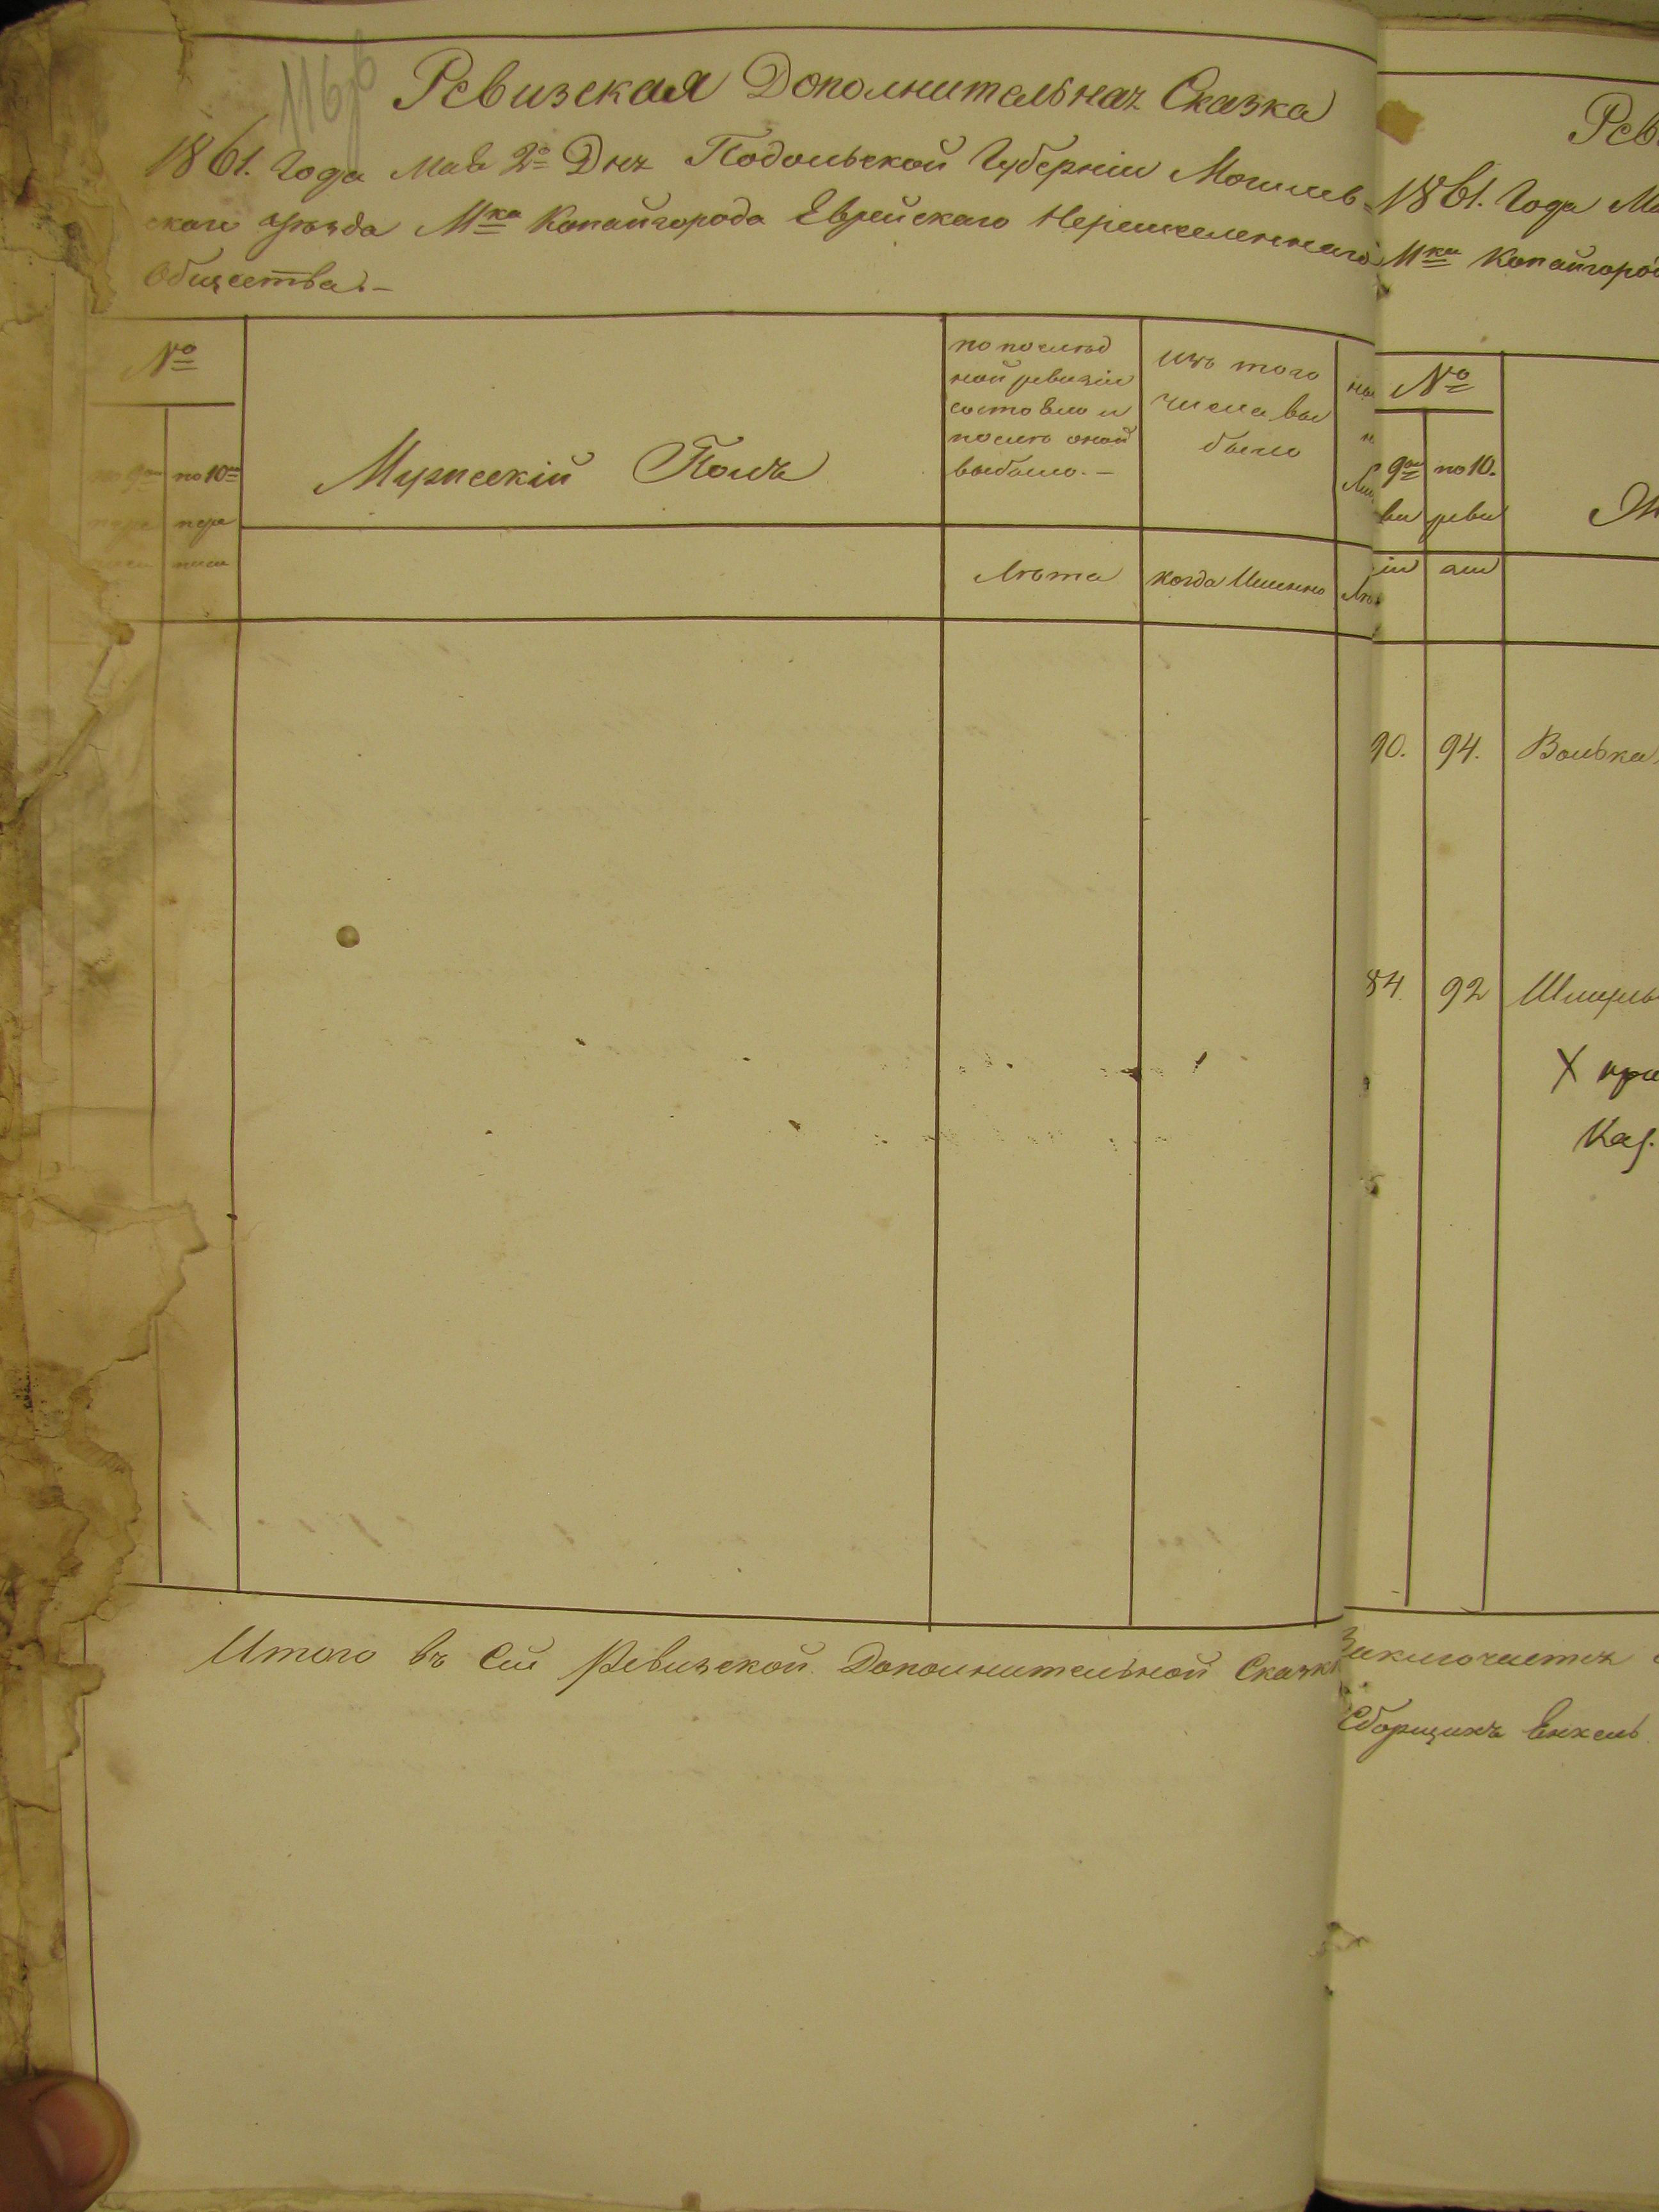 Ревизская Дополнительная Сказка
1861. Года Мая 2го Дня Подольской Губерніи Могилев-
скаго уѣзда Мка Копайгорода Еврейскаго
Общества.-
№
по 9ой пере писи
по 10ой пере писи
Мужескій Полъ
по послѣд
ней ревизіи
состояло и
послѣ оной
выбыло.-
изъ того
числа вы
было
Лѣта
когда Именно
Итого въ Сей Ревизской Дополнительной Сказкѣ
1861. Года
Мка Копайгоро
№
9ой
по 10.
реви
90.
94.
Волька
84.
92
Х
Заключается
Сборщикъ Енкель